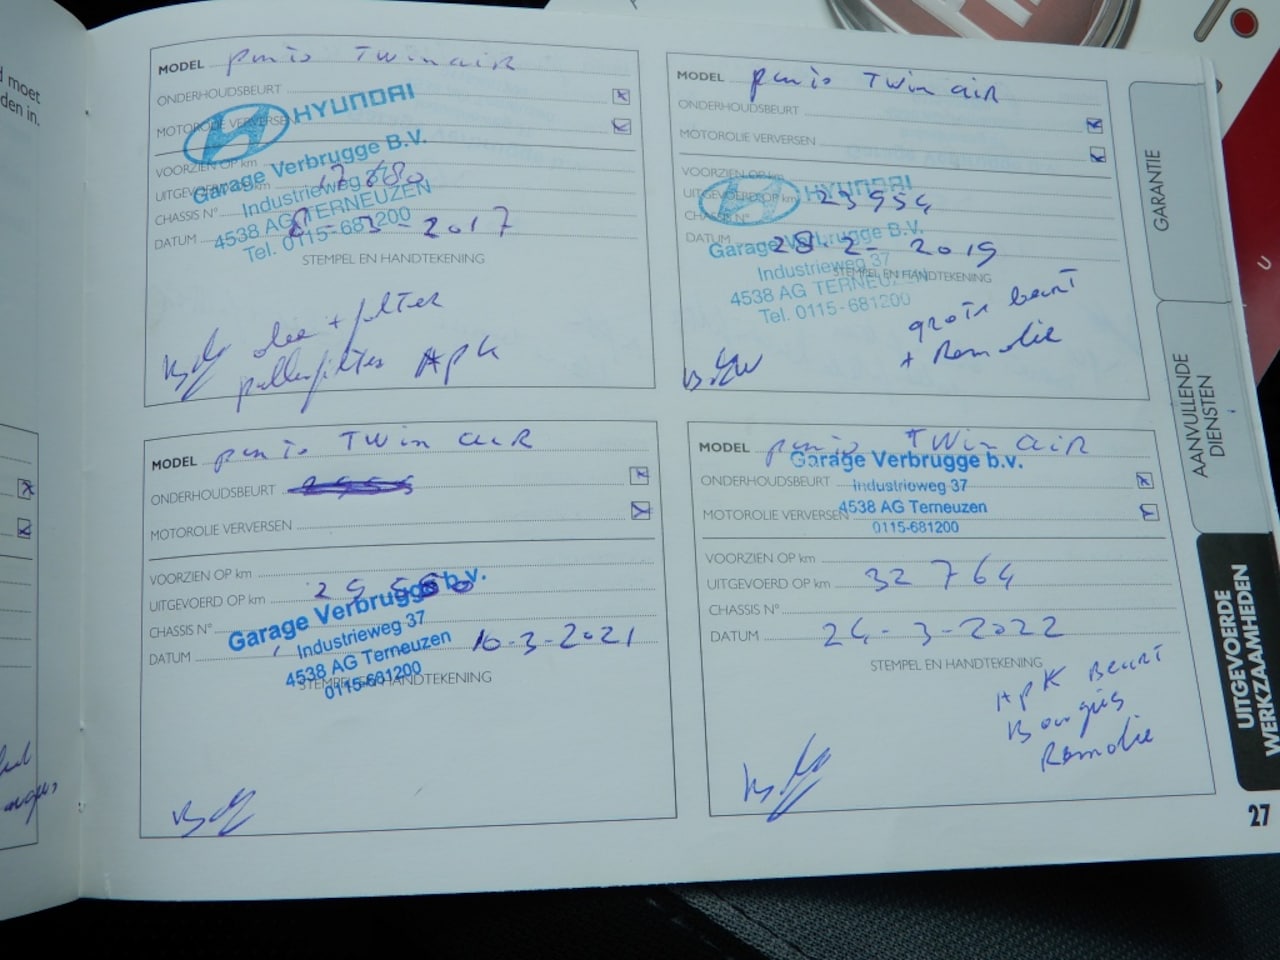 d moet
den in.
MODEL punto Twinair
ONDERHOUDSBEURT
MOTOROLIE VERVERSEN
HYUNDAI
Garage Verbrugge B.V.
Industrieweg
4538 AG TERNEUZEN
Tel. 0115-681200
VOORZIEN OP km
UITGEVOERD OP km 17 680
CHASSIS N°
DATUM 8-3-2017
STEMPEL EN HANDTEKENING
olie + filter
pollenfilter APK
MODEL punto Twinair
ONDERHOUDSBEURT
MOTOROLIE VERVERSEN
VOORZIEN OP km
UITGEVOERD OP km 23954
CHASSIS N°
DATUM 28-2-2019
HYUNDAI
Garage Verbrugge B.V.
Industrieweg 37
4538 AG TERNEUZEN
Tel. 0115-681200
STEMPEL EN HANDTEKENING
grote beurt
+ Remolie
MODEL punto Twin air
ONDERHOUDSBEURT
MOTOROLIE VERVERSEN
VOORZIEN OP km
UITGEVOERD OP km
CHASSIS N°
DATUM 16-3-2021
Garage Verbrugge b.v.
Industrieweg 37
4538 AG Terneuzen
0115-681200
STEMPEL EN HANDTEKENING
MODEL punto Twin air
Garage Verbrugge b.v.
Industrieweg 37
4538 AG Terneuzen
0115-681200
ONDERHOUDSBEURT
MOTOROLIE VERVERSEN
VOORZIEN OP km
UITGEVOERD OP km 32764
CHASSIS N°
DATUM 24-3-2022
STEMPEL EN HANDTEKENING
APK Beurt
Bougies
Remolie
GARANTIE
AANVULLENDE
DIENSTEN
UITGEVOERDE
WERKZAAMHEDEN
27